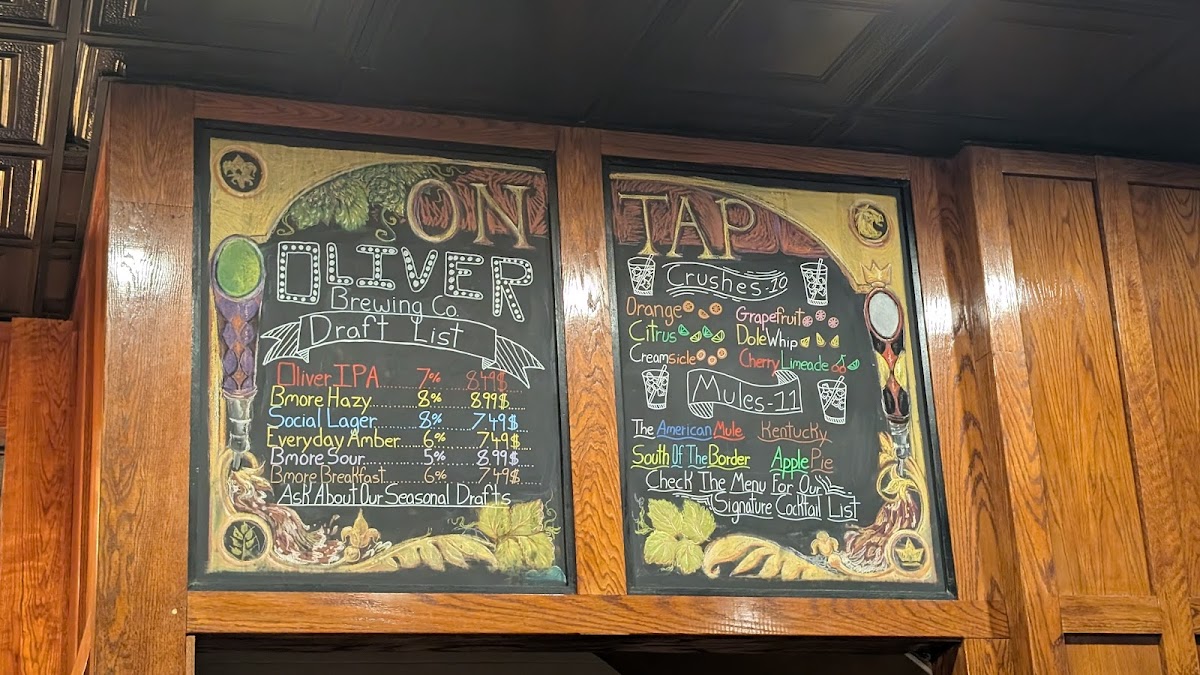 ON
OLIVER
Brewing Co.
Draft List
Oliver IPA 7% 8.49$
Bmore Hazy 8% 8.99$
Social Lager 8% 7.49$
Everyday Amber 6% 7.49$
Bmore Sour 5% 8.99$
Bmore Breakfast 6% 7.49$
Ask About Our Seasonal Drafts
TAP
Crushes-10
Orange Grapefruit
Citrus Dole Whip
Creamsicle Cherry Limeade
Mules-11
The American Mule Kentucky
South Of The Border Apple Pie
Check The Menu For Our
Signature Cocktail List